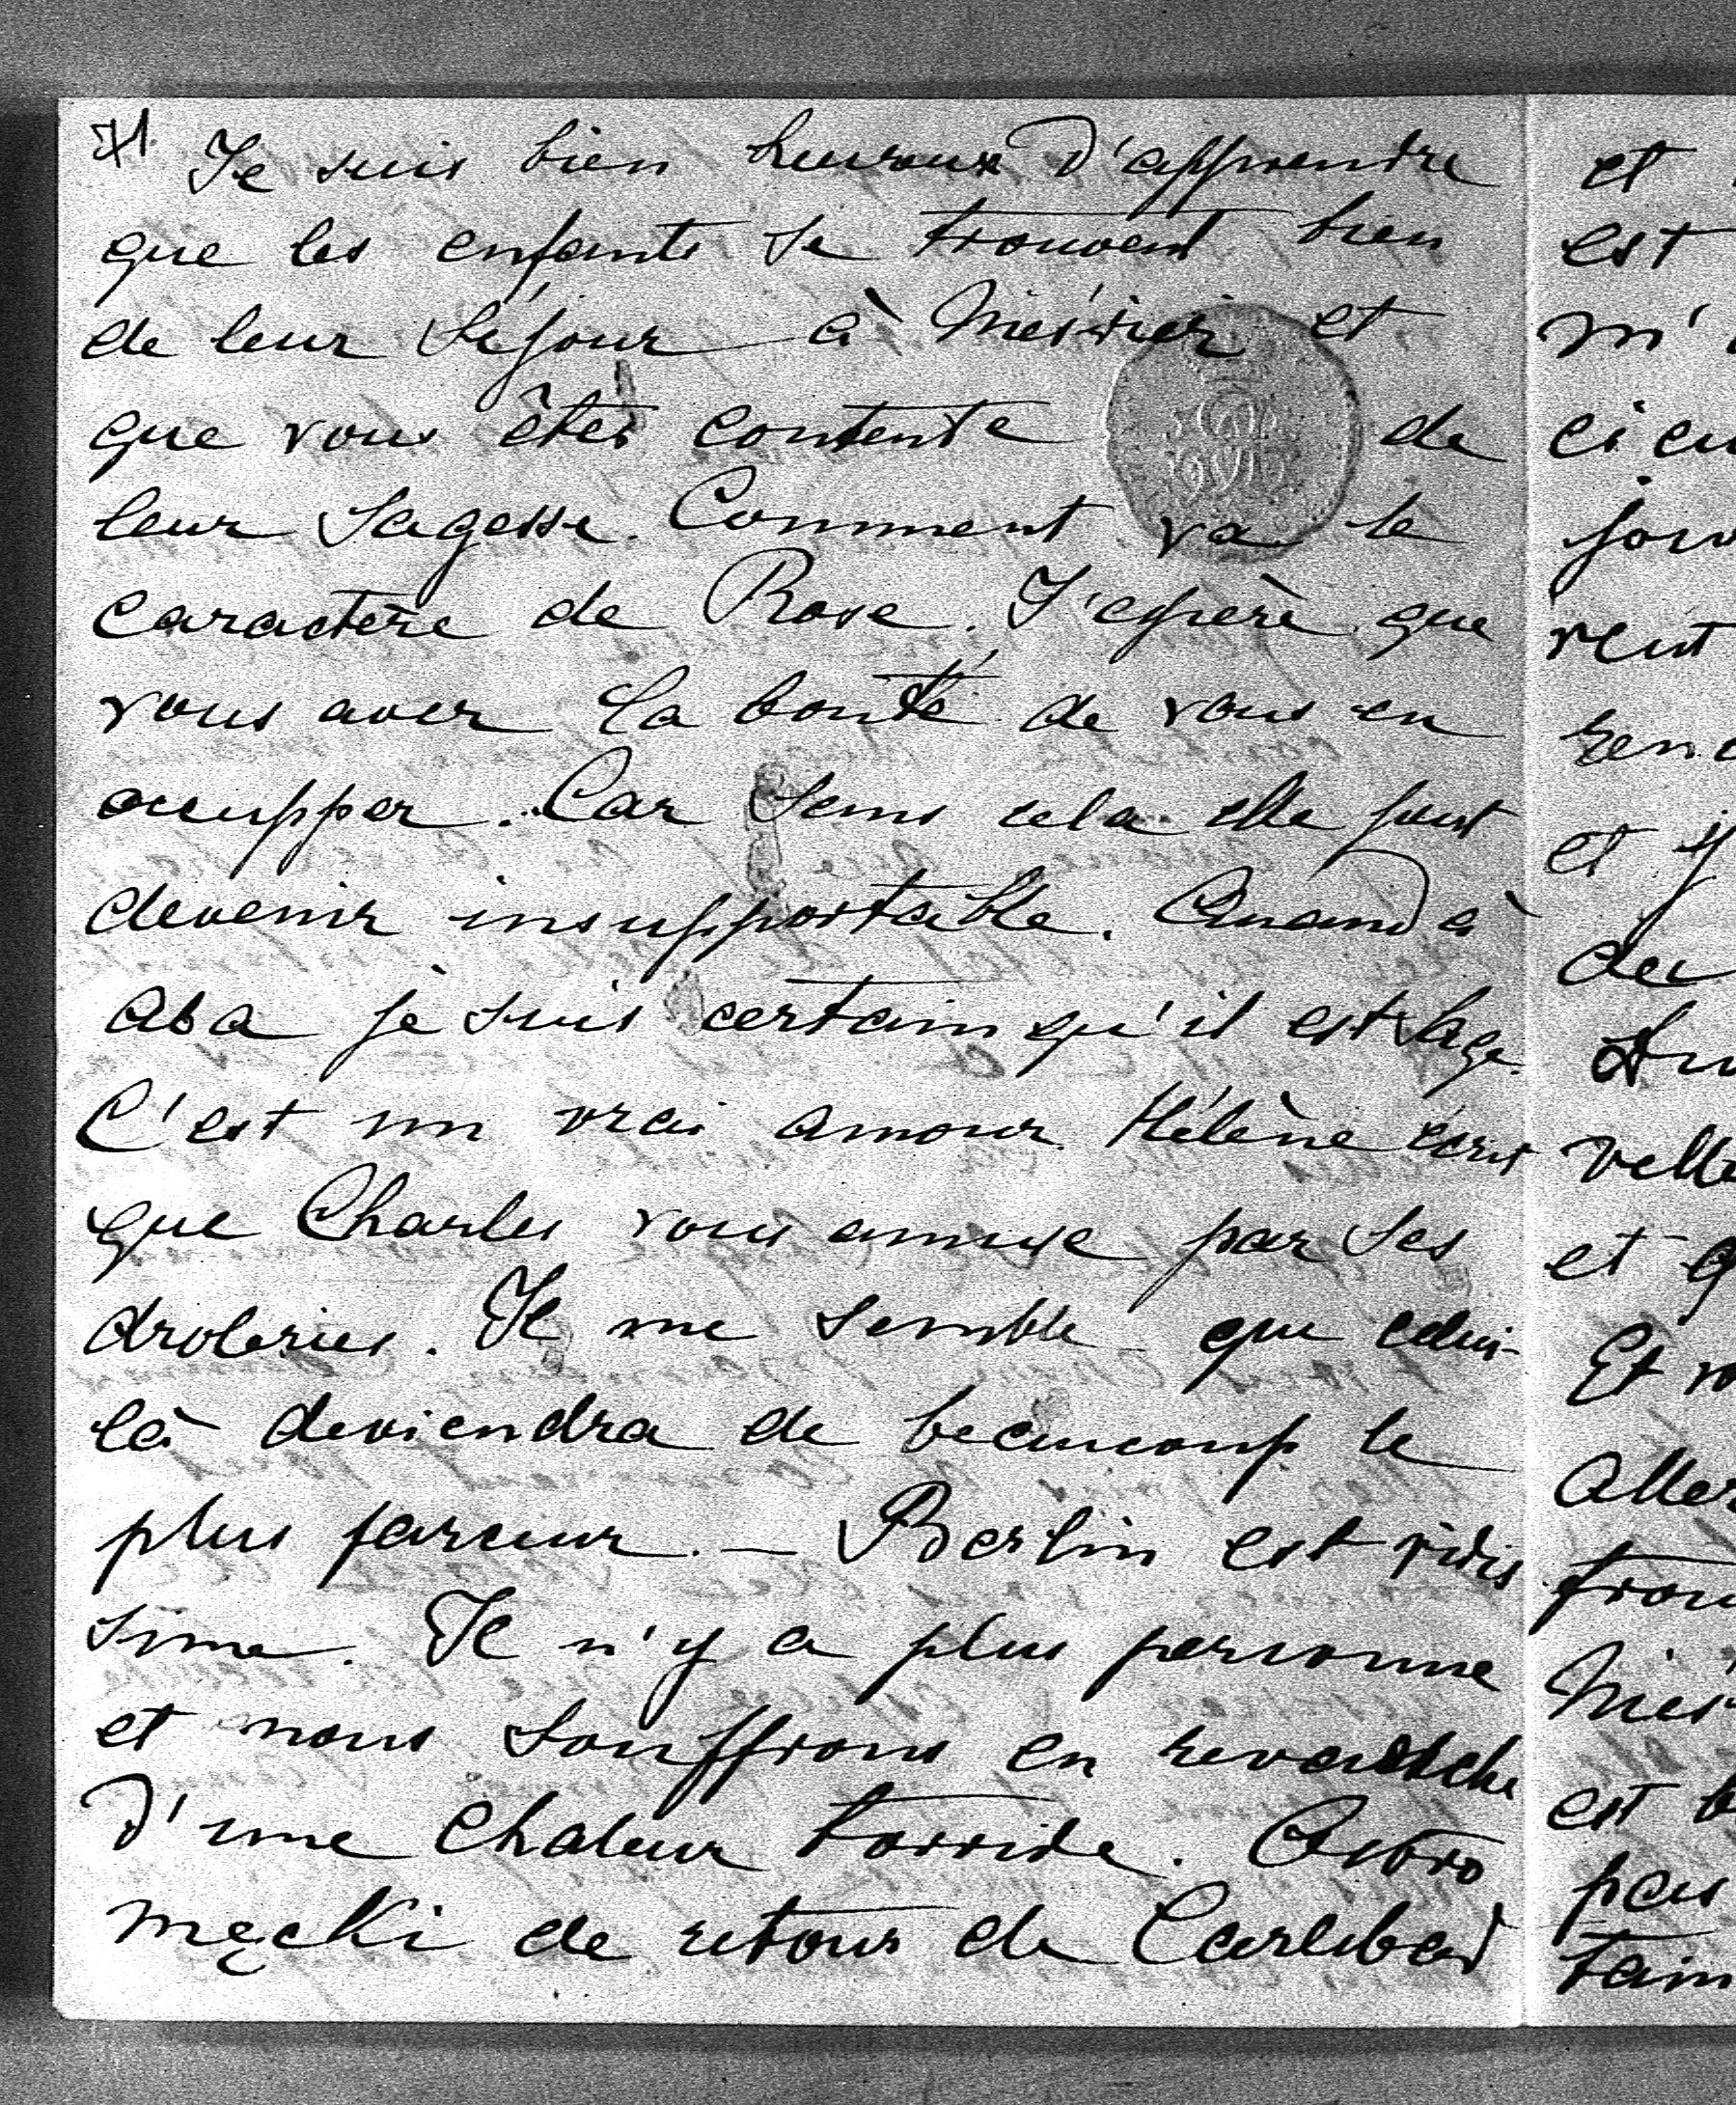 71
Je suis bien heureux d'apprendre
que les enfants se trouvent bien
de leur séjour à Niéśwież et
que vous êtes contente de
leur sagesse. Comment va le
caractère de Rose. J'espère que
vous avez la bonté de vous en
occupper. Car sans cela elle peut
devenir insupportable. Quand à
Aba je suis certain qu'il est sage.
C'est un vrai amour. Hélène écrit
que Charles vous amuse par ses
droleries. Il me semble que celui-
là deviendra de beaucoup le
plus farceur. — Berlin est vidis
sime. Il n'y a plus personne
et nous souffrons en revanche
d'une chaleur torride. Ostro
męcki de retour de Carlsbad
et
est
m'
jour
et
de
velle
et
Et
Aller
trou
Nies
est
pas
tain